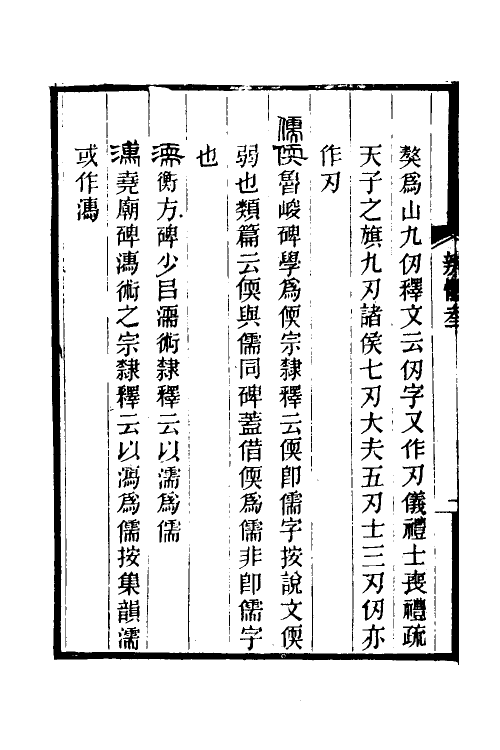 獒爲山九仞釋文云仞字又作刃儀禮士喪禮疏
天子之旗九刃諸侯七刃大夫五刃士三刃仞亦
作刃
儒偄魯峻碑學爲偄宗隸釋云偄卽儒字按說文偄
弱也類篇云偄與儒同碑蓋借偄爲儒非卽儒字
也
濡衡方碑少㠯濡術隸釋云以濡爲儒
㵖堯廟碑㵖術之宗隸釋云以㵖爲儒按集韻濡
或作㵖